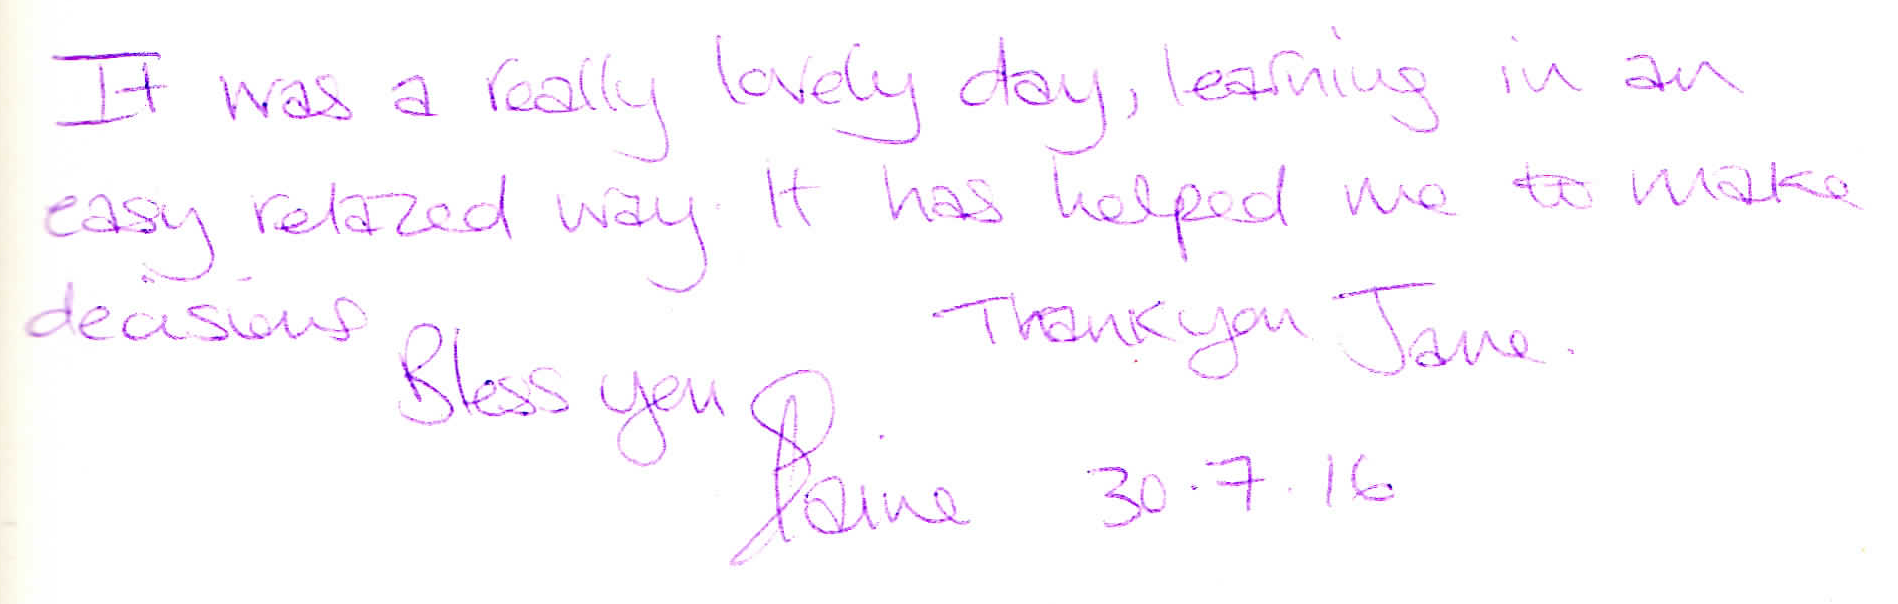 It was a really lovely day, learning in an
easy relazed way. It has helped me to make
decisions
Thank you Jane.
Bless you
30.7.16